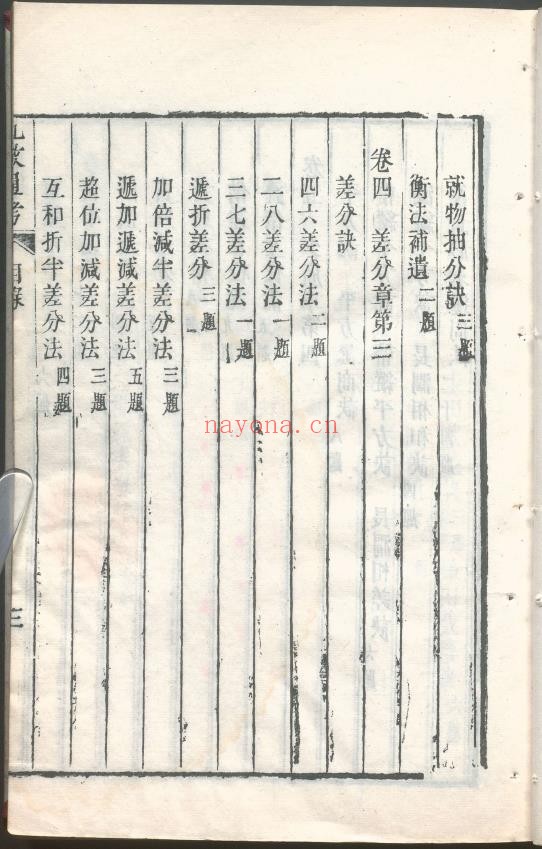 就物抽分訣三題
衡法補遺二題
卷四 差分章第三
差分訣
四六差分法二題
二八差分法一題
三七差分法一題
遞折差分三題
加倍減半差分法三題
遞加遞減差分法五題
超位加減差分法三題
互和折半差分法四題
目錄
三
nayona.cn